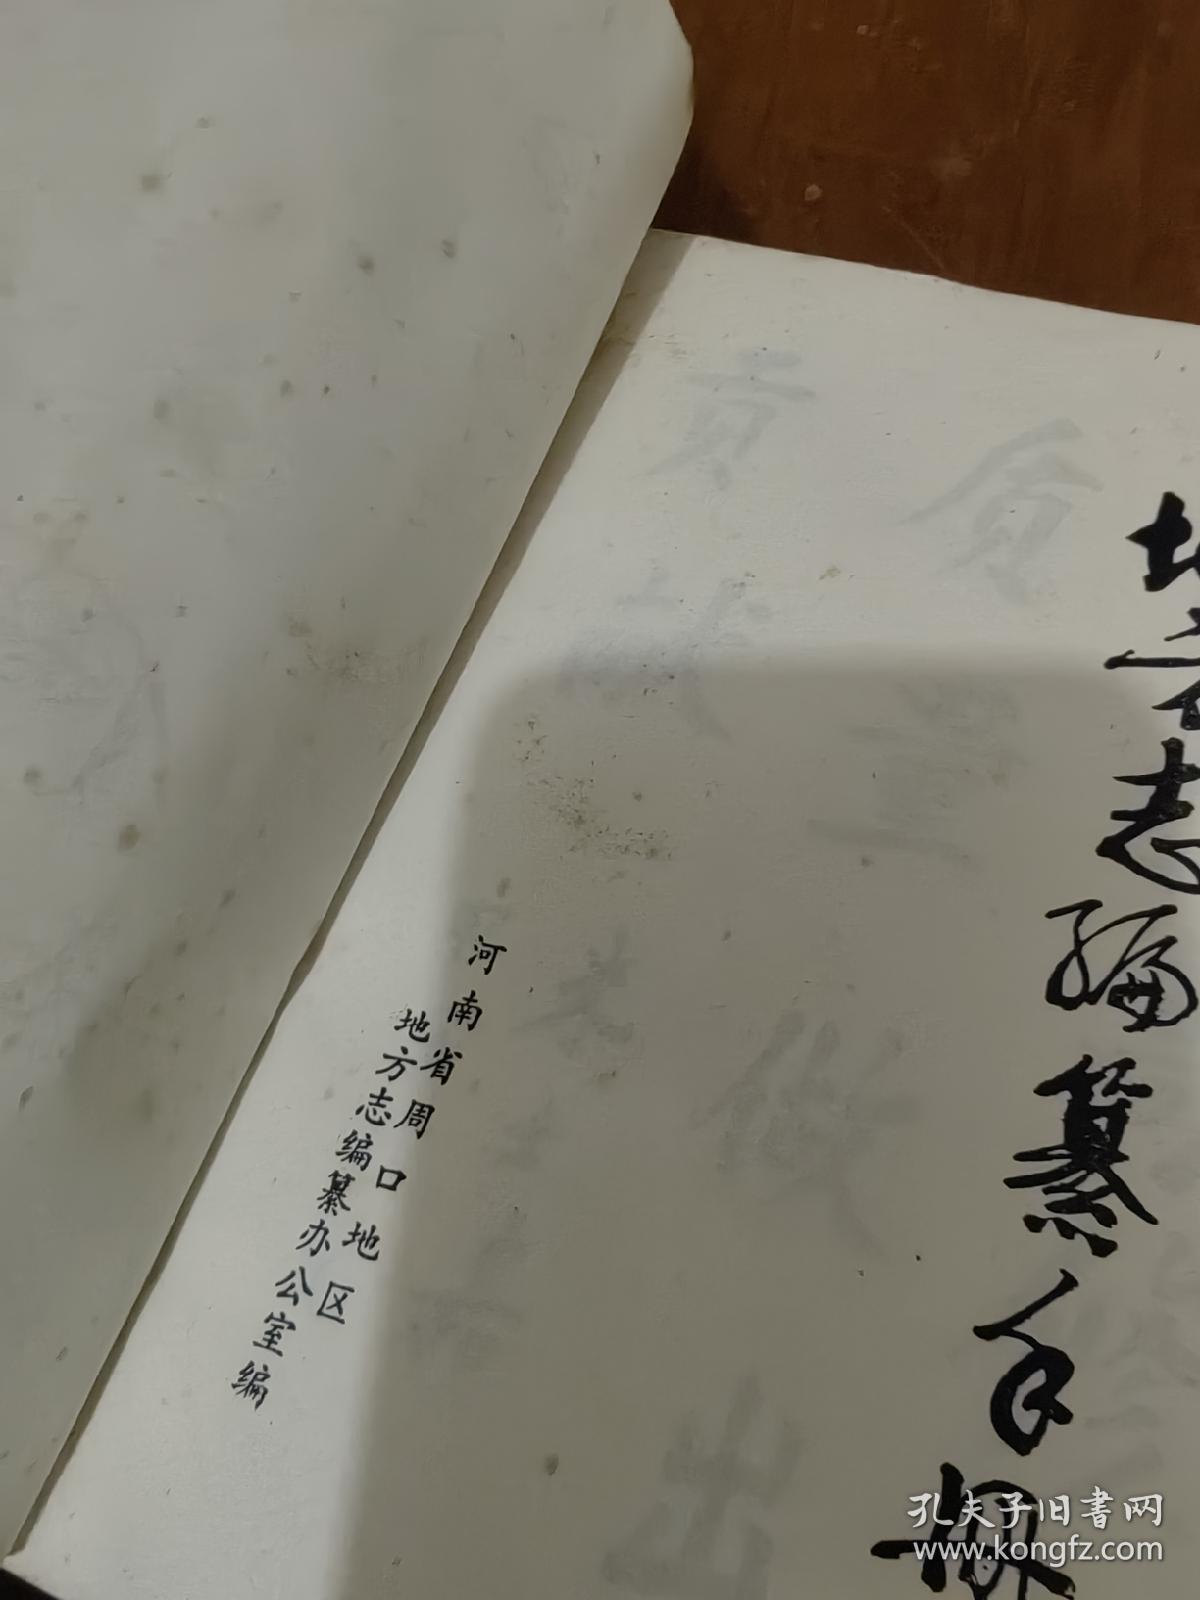 地方志编纂手册
河南省周口地区
地方志编纂办公室编
孔夫子旧书网
www.kongfz.com